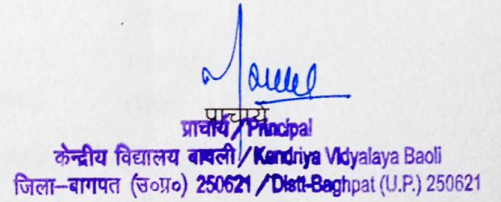 प्राचार्य
प्राचार्य / Principal
केन्द्रीय विद्यालय बावली / Kendriya Vidyalaya Baoli
जिला–बागपत (उ०प्र०) 250621 / Distt-Baghpat (U.P.) 250621